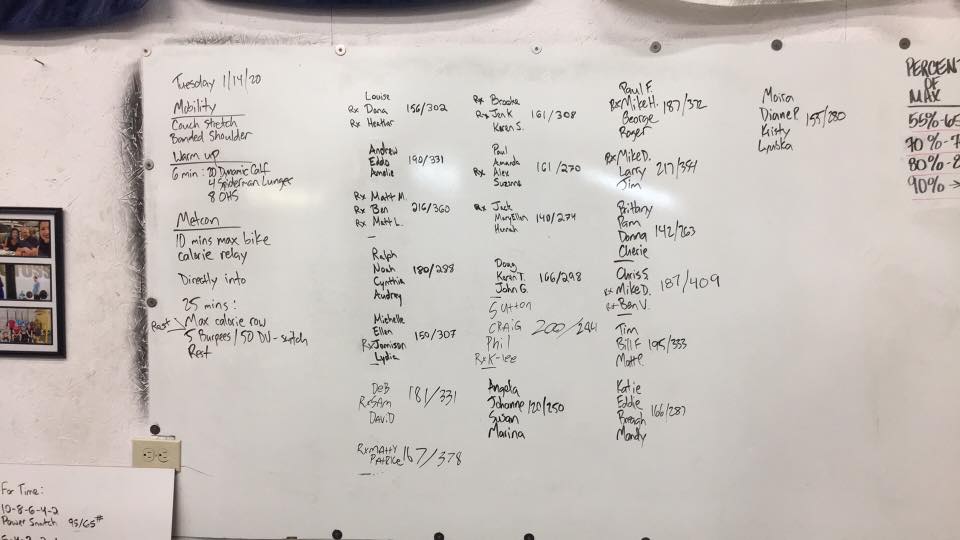 Tuesday 1/14/20
Mobility
Couch Stretch
Banded Shoulder
Warm up
6 min: 20 Dynamic Calf
4 Spiderman Lunges
8 OHS
Metcon
10 mins max bike
calorie relay
Directly into
25 mins:
Rest Max calorie row
5 Burpees / 50 DU - switch
Rest
Louise
Rx Dana 156/302
Rx Heather
Andrew
Eddo 190/331
Amalie
Rx Matt M.
Rx Ben 216/360
Rx Matt L.
Ralph
Noah 180/288
Cynthia
Audrey
Michelle
Ellen 150/307
Rx Jamison
Lydia
DeB
Rx SAm 181/331
DAViD
Rx MATTY
PATRICE 167/378
Rx Brooke
Rx Jen K 161/308
Karen S.
Paul
Amanda 161/270
Rx Alex
Suzanne
Rx Jack
MaryEllen 140/274
Hannah
Doug
Karen T. 166/298
John G.
Sutton
CRAiG 200/294
Phil
Rx K-lee
Angela
Johanne 120/250
Susan
Marina
Paul F.
Rx Mike H. 187/372
George
Roger
Rx Mike D.
Larry 217/354
Jim
Brittany
Pam
Donna 142/263
Cherie
Chris S
Rx Mike D. 187/409
Rx Ben V.
Tim
Bill F 195/333
Matt P.
Katie
Eddie
166/287
Mandy
Moira
Diane P. 155/280
Kristy
PERCEN
OF
MAX
55%-65
70%-7
80%-8
90% →
For Time:
10-8-6-4-2
Power Snatch 95/65#